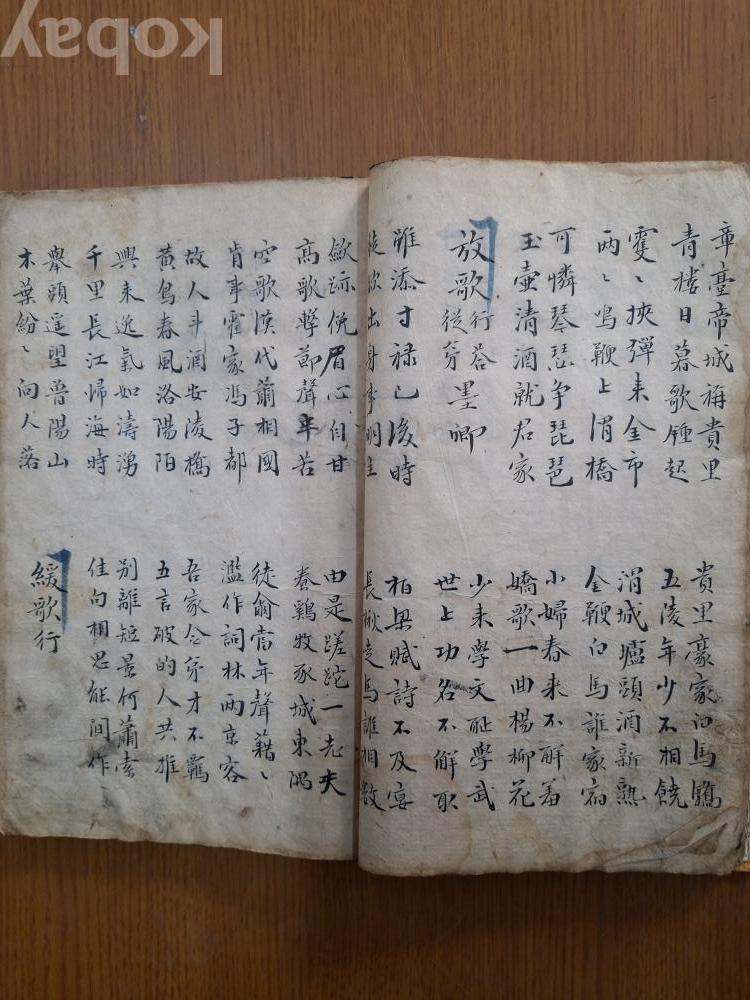 章臺帝城稱貴里
青樓日暮歌鍾起
貴里豪家白馬驕
五陵年少不相饒
雙〻挾彈来金市
兩〻鳴鞭上渭橋
渭城壚頭酒新熟
金鞭白馬誰家宿
可憐琴瑟争琵琶
玉壺清酒就君家
小婦春来不解羞
嬌歌一曲楊柳花
放歌行荅從弟墨卿
少来學文耻學武
世上功名不解取
雖添寸禄已後時
徒欲出身事明主
柏梁賦詩不及宴
長楸走馬誰相數
歛跡俛眉心自甘
高歌擊節聲半苦
由是蹉跎一老夫
養鷄牧豕城東隅
空歌漢代蕭相國
肯事霍家馮子都
徒翁當年聲藉〻
濫作詞林兩京客
故人斗酒安陵橋
黄鳥春風洛陽陌
吾家令弟才不羈
五言破的人共推
興来逸氣如濤湧
千里長江歸海時
別離短景何蕭索
佳句相思能間作
舉頭遥望普陽山
木葉紛〻向人落
緩歌行
kobay